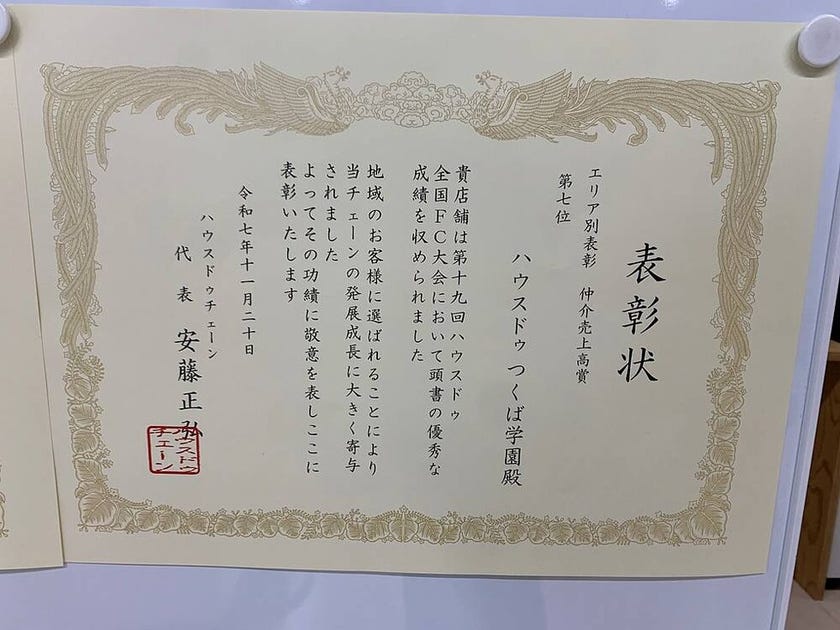 表彰状
エリア別表彰 仲介売上高賞
第七位
ハウスドゥ つくば学園殿
貴店舗は第十九回ハウスドゥ
全国FC大会において頭書の優秀な
成績を収められました
地域のお客様に選ばれることにより
当チェーンの発展成長に大きく寄与
されました
よってその功績に敬意を表しここに
表彰いたします
令和七年十一月二十日
ハウスドゥチェーン
代表 安藤正弘
ハウスドゥ
チェーン